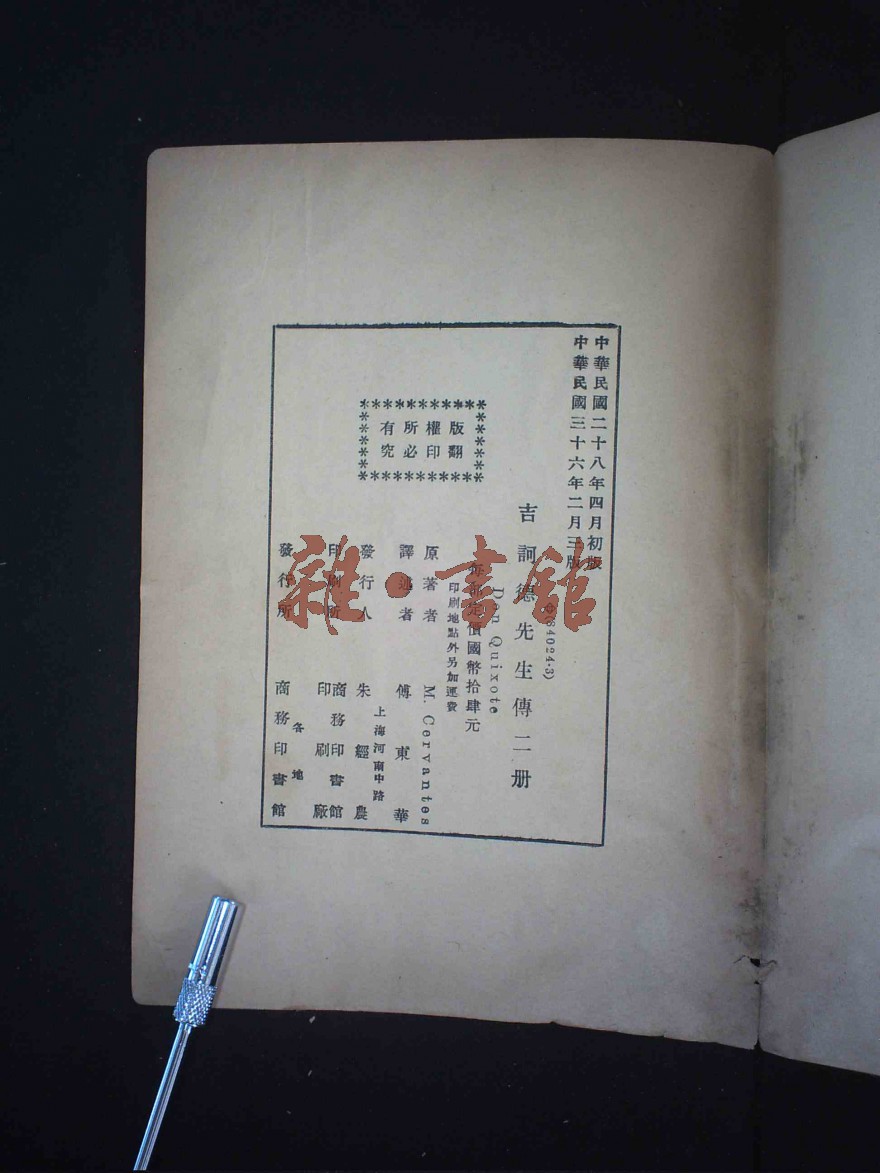 中華民國二十八年四月初版
中華民國三十六年二月三版
(64024·3)
吉訶德先生傳二册
Don Quixote
每部定價國幣拾肆元
印刷地點外另加運費
版權所有
翻印必究
原著者 M. Cervantes
譯述者 傅東華
發行人 朱經農
上海河南中路
印刷所 商務印書館
印刷廠
發行所 商務印書館
各地
雜·書館